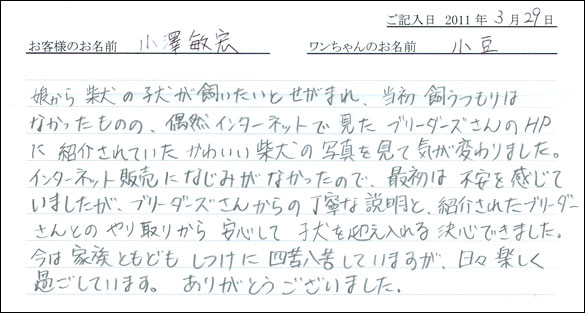 ご記入日 2011 年 3 月 29 日
お客様のお名前 小澤敏宏 ワンちゃんのお名前 小豆
娘から 柴犬の子犬が飼いたいとせがまれ、当初 飼うつもりは
なかったものの、偶然インターネットで見た ブリーダーズさんのHP
に 紹介されていた かわいい柴犬の写真を見て気が変わりました。
インターネット販売になじみがなかったので、最初は 不安を感じて
いましたが、ブリーダーズさんからの丁寧な説明と、紹介されたブリーダー
さんとの やり取りから 安心して 子犬を迎え入れる 決心できました。
今は 家族ともども しつけに 四苦八苦していますが、日々 楽しく
過ごしています。 ありがとうございました。